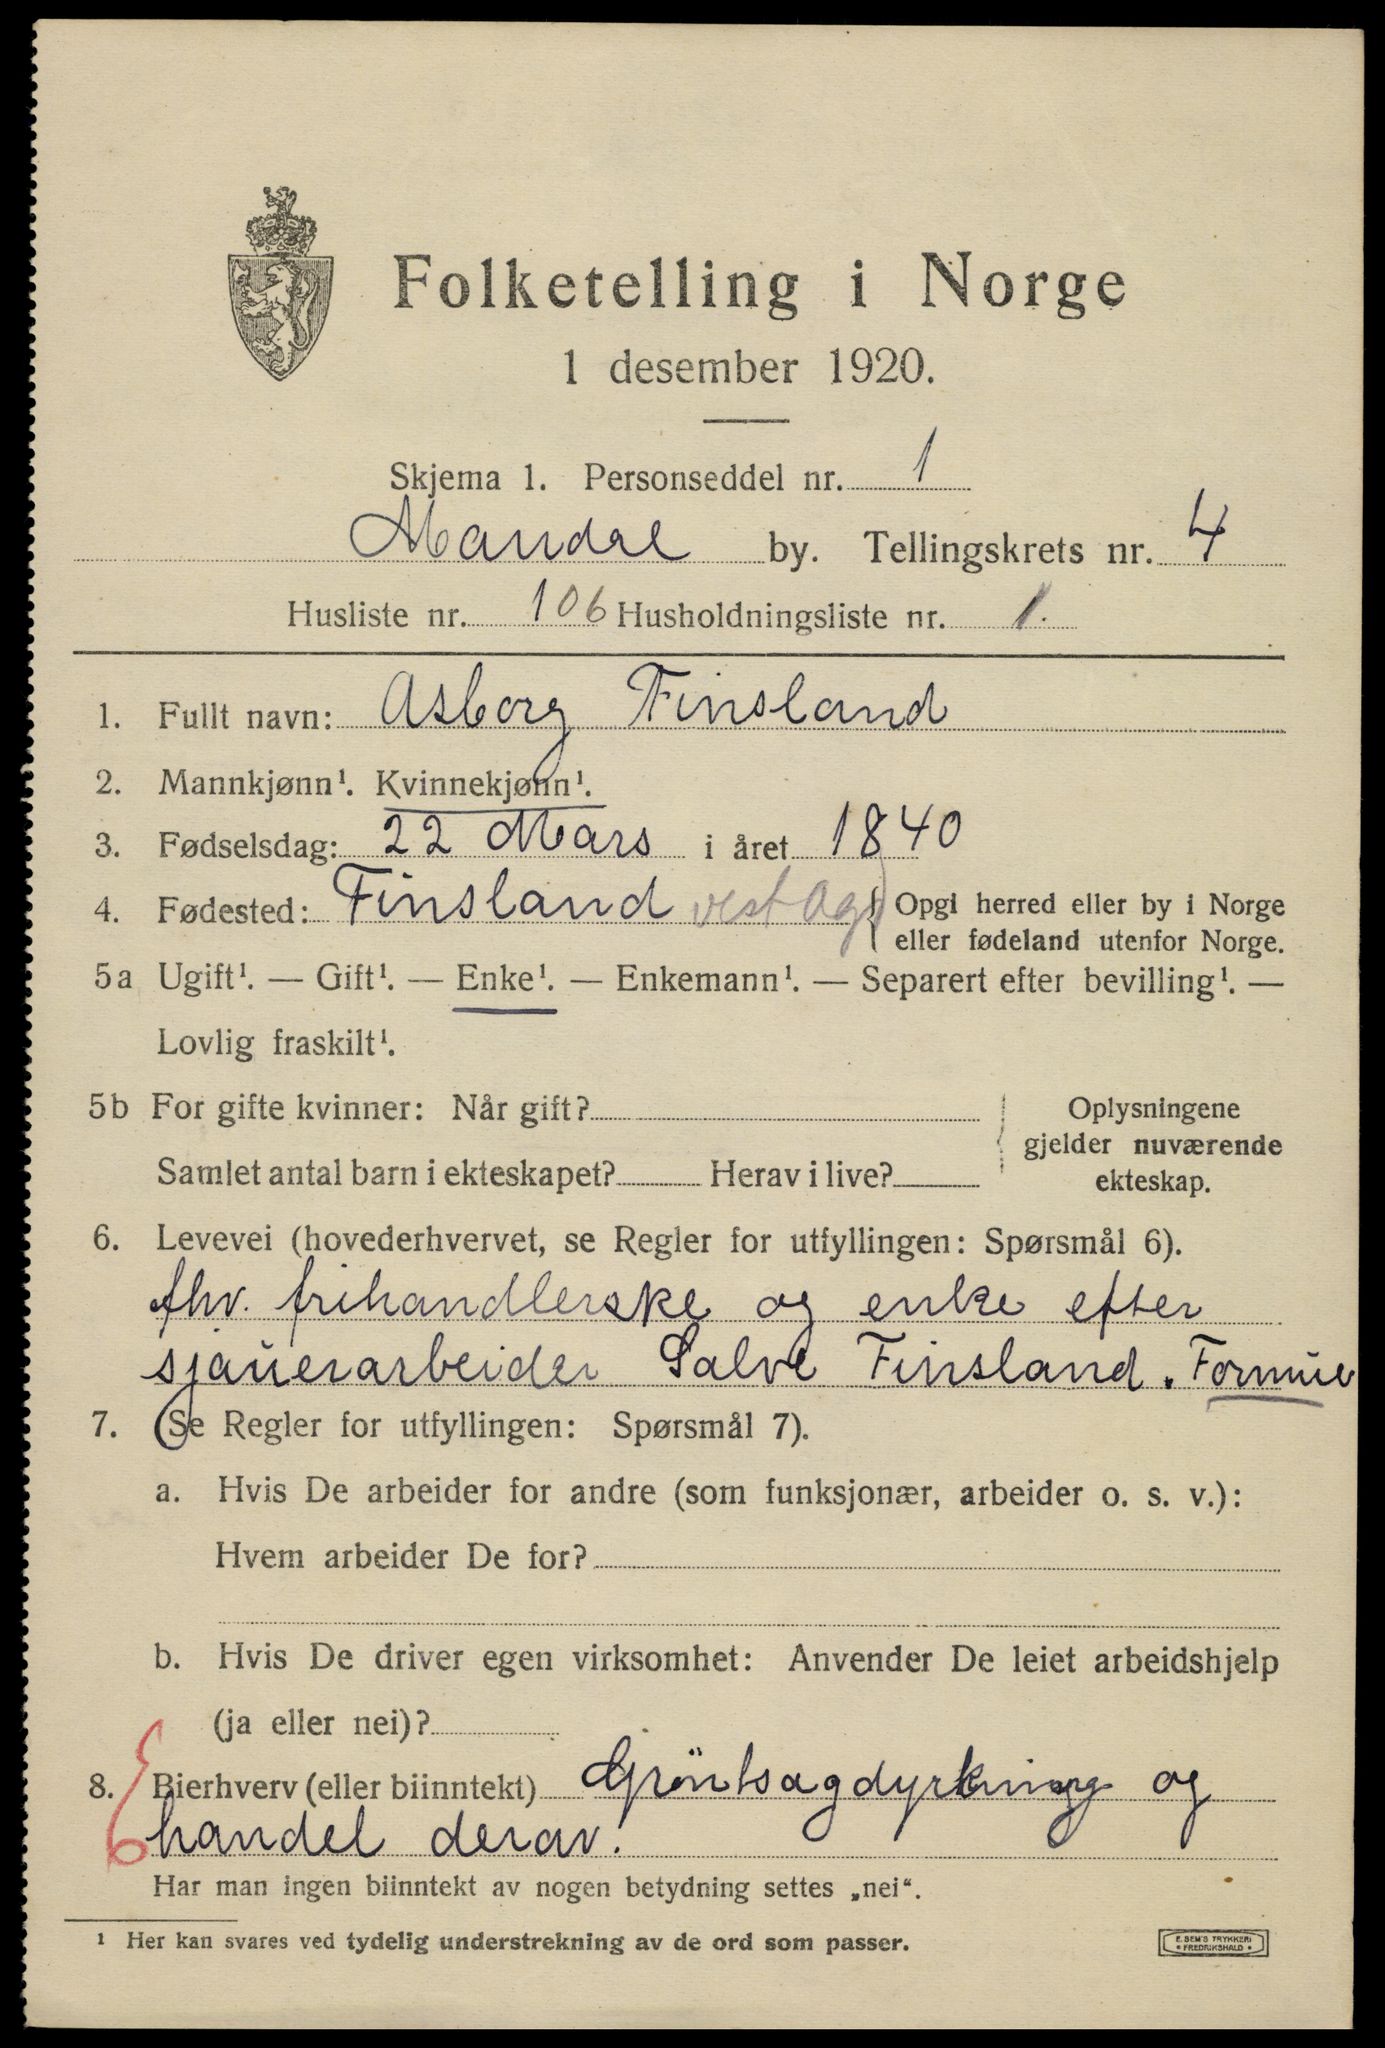 Folketelling i Norge
1 desember 1920.
Skjema 1. Personseddel nr. 1
Mandal by. Tellingskrets nr. 4
Husliste nr. 106 Husholdningsliste nr. 1.
1. Fullt navn: Asborg Finsland
2. Mannkjønn¹. Kvinnekjønn¹.
3. Fødselsdag: 22 Mars i året 1840
4. Fødested: Finsland vest Agd { Opgi herred eller by i Norge
eller fødeland utenfor Norge.
5a Ugift¹. — Gift¹. — Enke¹. — Enkemann¹. — Separert efter bevilling¹. —
Lovlig fraskilt¹.
5b For gifte kvinner: Når gift? Oplysningene
gjelder nuværende
Samlet antal barn i ekteskapet? Herav i live? ekteskap.
6. Levevei (hovederhvervet, se Regler for utfyllingen: Spørsmål 6).
fhv. frihandlerske og enke efter
sjauerarbeider Salve Finsland. Formue
7. (Se Regler for utfyllingen: Spørsmål 7).
a. Hvis De arbeider for andre (som funksjonær, arbeider o. s. v.):
Hvem arbeider De for?
b. Hvis De driver egen virksomhet: Anvender De leiet arbeidshjelp
(ja eller nei)?
8. Bierhverv (eller biinntekt) Grøntsagdyrkning og
handel derav.
Har man ingen biinntekt av nogen betydning settes „nei“.
¹ Her kan svares ved tydelig understrekning av de ord som passer.
E. SEM'S TRYKKERI
• FREDRIKSHALD •